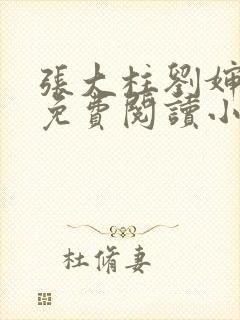 張大柱劉嬸
免費閱讀小
杜脩妻